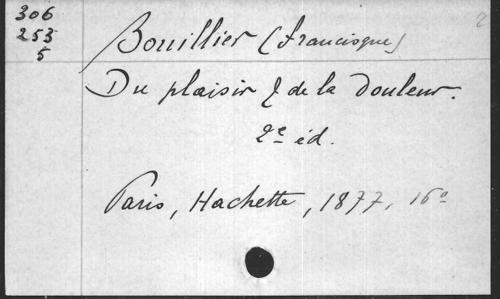 306
253
5
Bouillier (Francisque)
Du plaisir & de la douleur.
2e éd.
Paris, Hachette, 1877, 16o
2